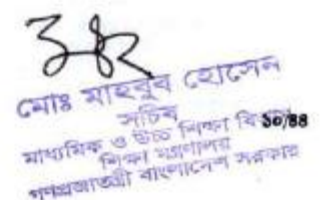 মোঃ মাহবুব হোসেন
সচিব
মাধ্যমিক ও উচ্চ শিক্ষা বি ১০/৪৪
শিক্ষা মন্ত্রণালয়
গণপ্রজাতন্ত্রী বাংলাদেশ সরকার